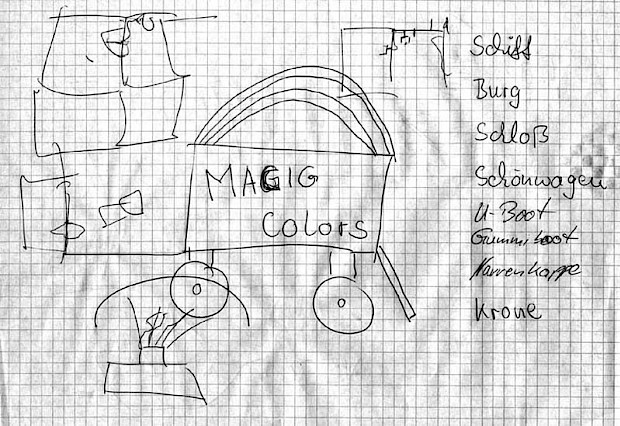 MAGIG
Colors
Schiff
Burg
Schloß
Schönwagen
U-Boot
Gummiboot
Narrenkappe
Krone